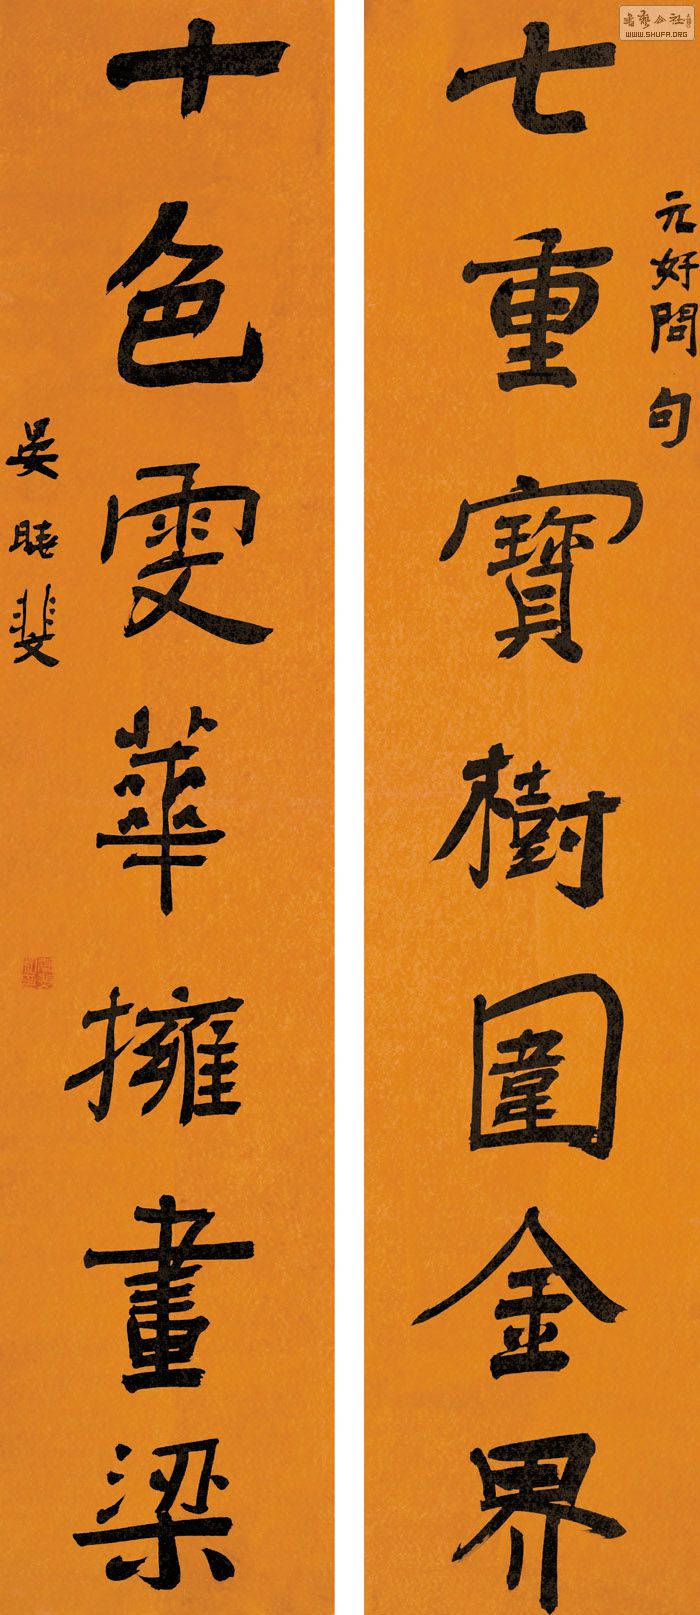 元好問句
七重寶樹圍金界
十色雯華擁畫梁
晏曉斐
书艺公社
WWW.SHUFA.ORG